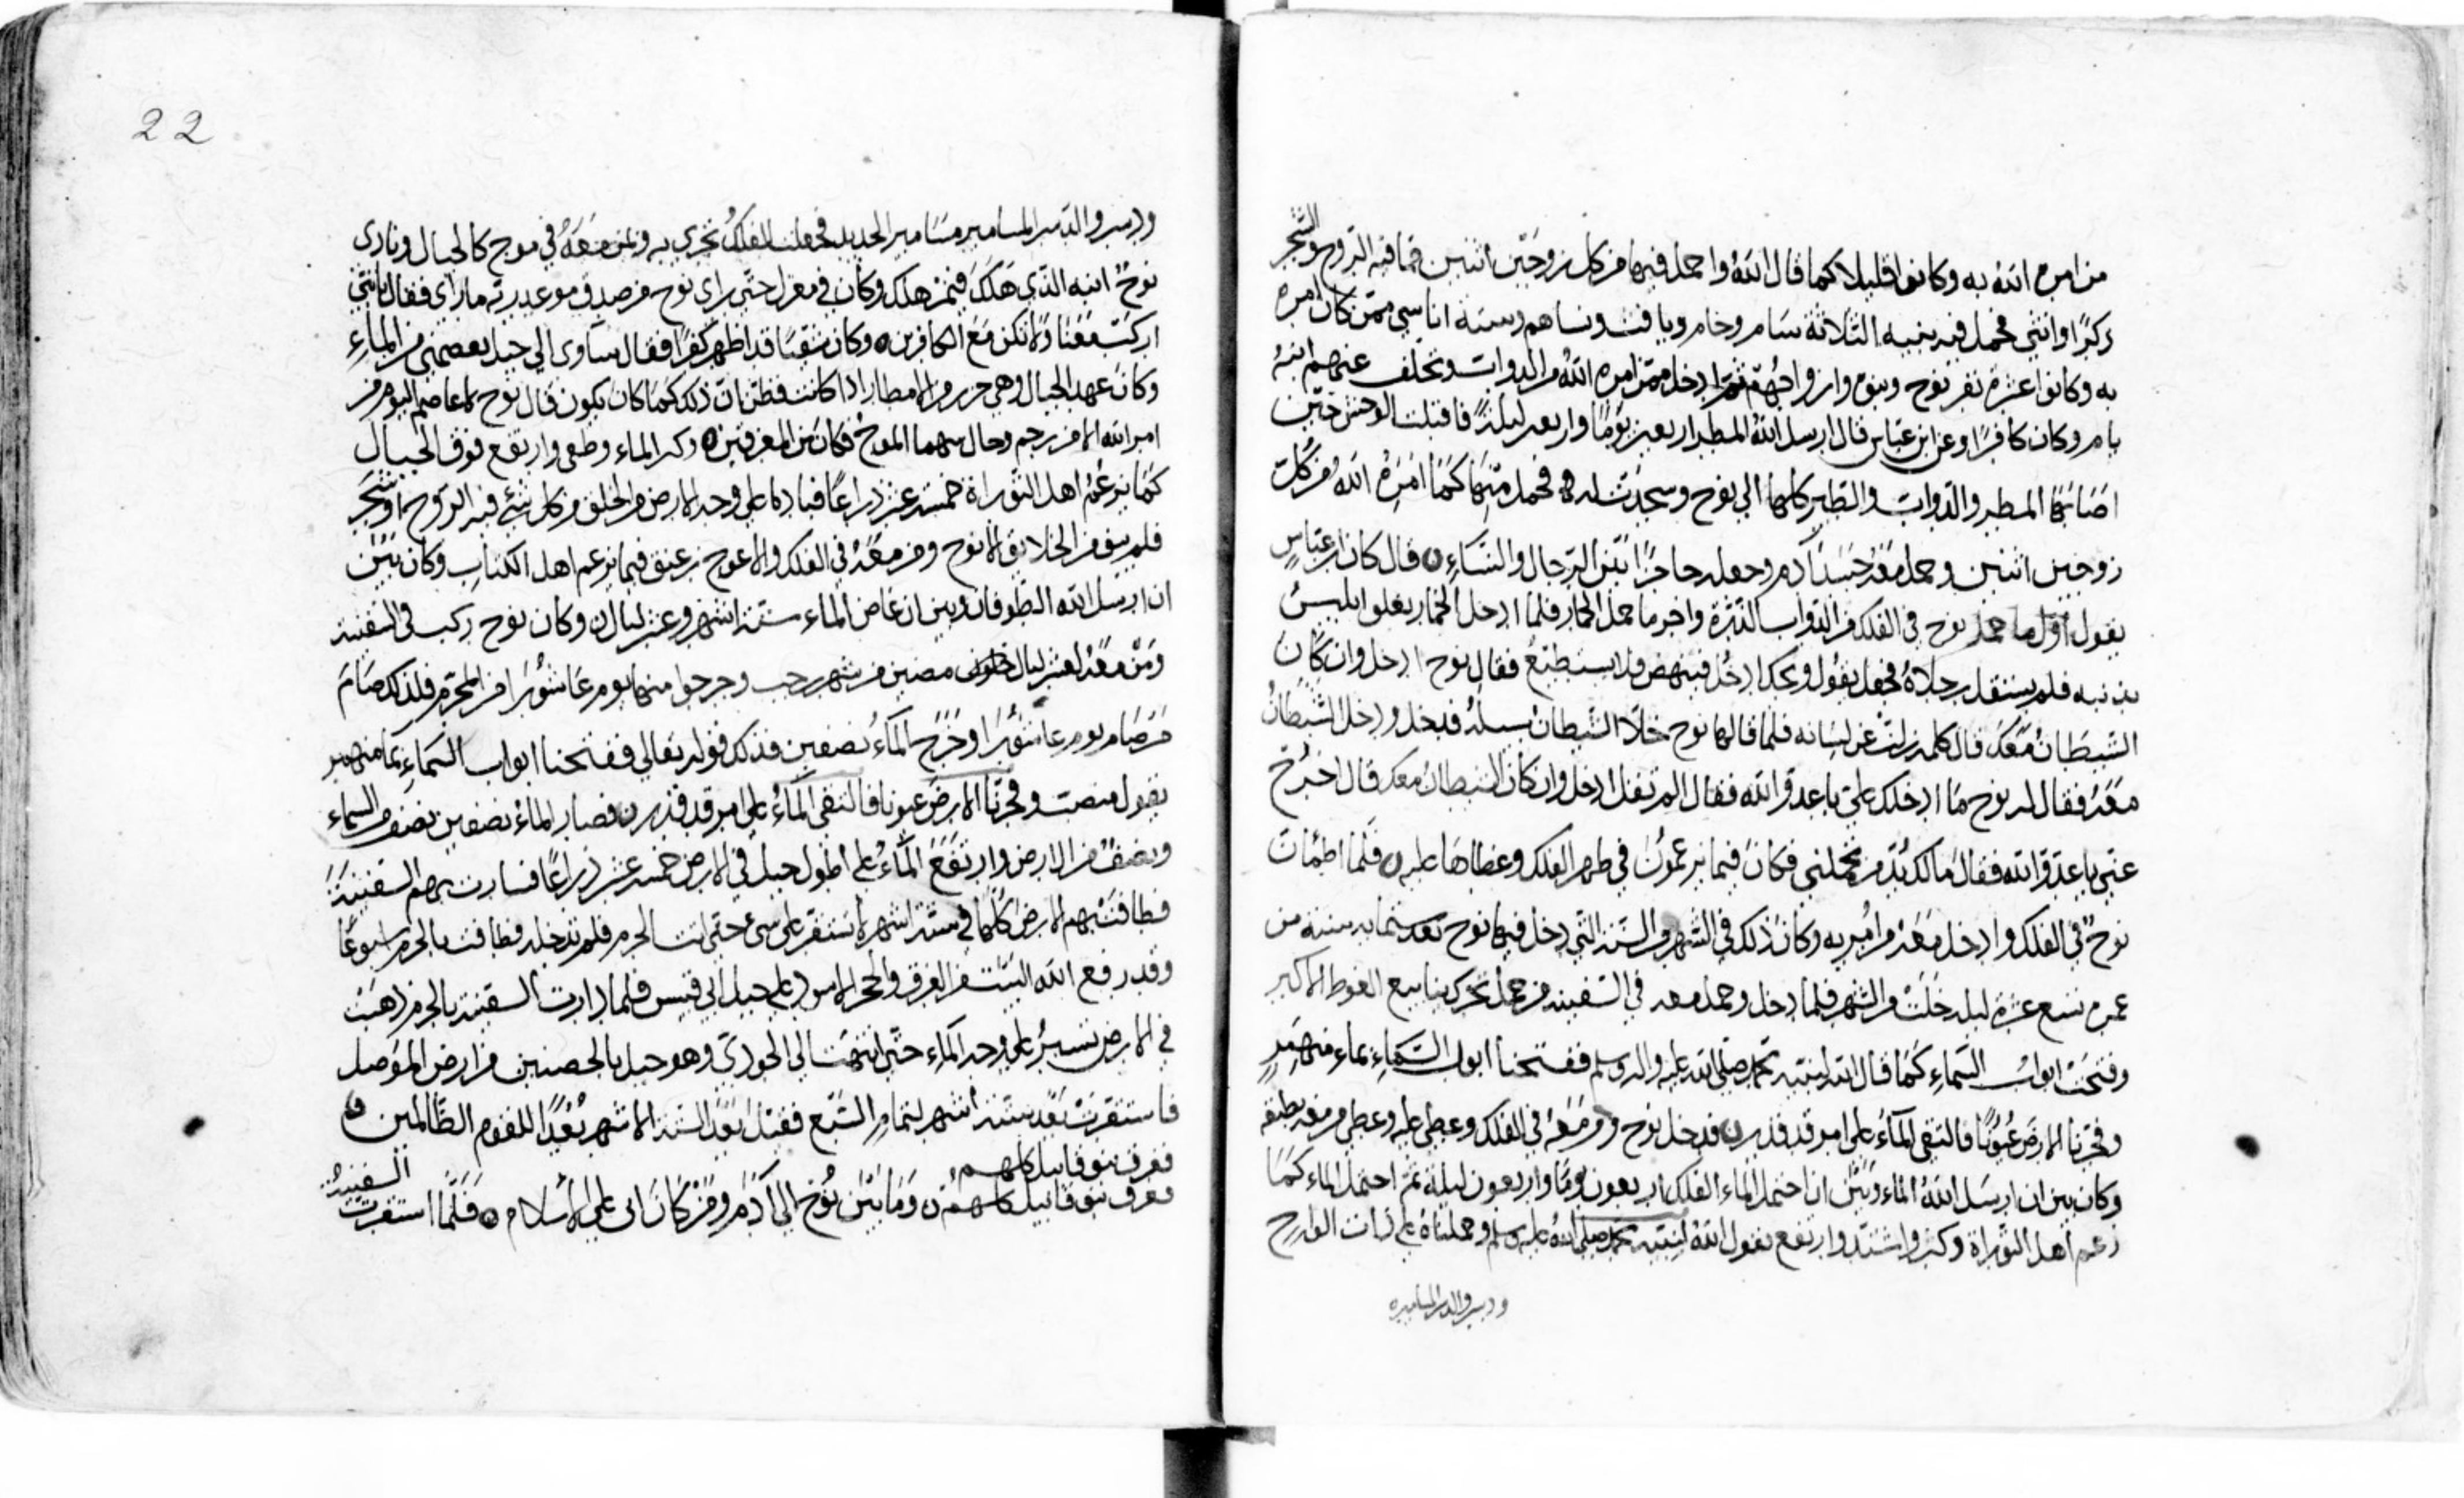 والشجر
من امره الله به وكانوا قليلا كما قال الله واحمل فيها من كل زوجين اثنين فما فيه الروح
ذكرًا وانثي فحمل فيه بنيه الثلاثة سام وحام ويافث ونساهم وستة اناسي ممن كان امره
به وكانوا عشرة نفر نوح وبنوه وازواجهم ثم ادخل ممن امره الله من الدواب وتخلف عنهم ابنه
يام وكان كافرًا وعن ابن عباس قال ارسل الله المطر اربعين يومًا واربعين ليلة فاقبلت الوحش حين
اصابها المطر والدواب والطير كلها الي نوح وسخرت له فحمل منها كما امره الله من كل
زوجين اثنين وحمل معه جسد آدم وجعله حاجزًا بين الرجال والنساء قال كان ابن عباس
يقول اول ما حمل نوح في الفلك من الدواب الذرة واخر ما حمل الحمار فلما ادخل الحمار تعلق ابليس
بذنبه فلم يستقل رجلاه فجعل يقول ويحك ادخل فينهض ولا يستطيع فقال نوح ادخل وان كان
الشيطان معك قال كلمة زلت عن لسانه فلما قالها نوح خلا الشيطان سبيله فدخل ودخل الشيطان
معه فقال له نوح ما ادخلك علي يا عدو الله فقال الم تقل ادخل وان كان الشيطان معك قال اخرج
عني يا عدو الله فقال مالك بد من تحملني فكان فيما يزعمون في ظهر الفلك وغطاها عليه فلما اطمأن
نوح في الفلك وادخل معه من امر به وكان ذلك في الشهر من السنة التي دخل فيها نوح بعد ستماية سنة من
عمره تسع عشرة ليلة خلت من الشهر فلما دخل وحمل معه في السفينة من حمل تحرك ينابيع الغوط الاكبر
وفتحت ابواب السماء كما قال الله لنبيه محمد صلي الله عليه واله وسلم ففتحنا ابواب السماء بماء منهمر
وفجرنا الارض عيونًا فالتقي الماء علي امر قد قدر فدخل نوح ومن معه في الفلك وغطي عليه وعلي من معه بطبقه
وكان بين ان ارسل الله الماء وبين ان احتمل الماء الفلك اربعون يومًا واربعون ليلة ثم احتمل الماء كما
زعم اهل التوراة وكثر واشتد وارتفع يقول الله لنبيه محمد صلي الله عليه وسلم وحملناه علي ذات الواح
ودسر والدسر المسامير
22
ودسر والدسر المسامير مسامير الحديد فجعلت الفلك تجري به وبمن معه في موج كالجبال ونادى
نوح ابنه الذي هلك فيمن هلك وكان في معزل حتي راى نوح من صدق موعد ربه ما راى فقال يا بني
اركب معنا ولا تكن مع الكافرين وكان شقيًا قد اظهر كفرًا فقال سآوى الي جبل يعصمني من الماء
وكان عهد الجبال وهي حرز من الامطار اذا كانت فظن ان ذلك كما كان يكون قال نوح لا عاصم اليوم من
امر الله الا من رحم وحال بينهما الموج فكان من المغرقين وكثر الماء وطغى وارتفع فوق الجبال
كما يزعم اهل التوراة خمسة عشر ذراعًا فباد ما علي وجه الارض من الخلق من كل شئ فيه الروح او شجر
فلم يبق من الخلايق الا نوح ومن معه في الفلك والا عوج بن عنق فيما يزعم اهل الكتاب وكان بين
ان ارسل الله الطوفان وبين ان غاض الماء ستة اشهر وعشر ليال وكان نوح ركب في السفينة
ومن معه لعشر ليال مضين من شهر رجب وخرجوا منها يوم عاشورا من المحرم فلذلك صام
من صام يوم عاشورا وخرج الماء نصفين فذلك قوله تعالي ففتحنا ابواب السماء بماء منهمر
يقول منصب وفجرنا الارض عيونا فالتقي الماء علي امر قد قدر فصار الماء نصفين نصف من السماء
ونصف من الارض وارتفع الماء علي اطول جبل في الارض خمسة عشر ذراعًا فسارت بهم السفينة
فطافت بهم الارض كلها في ستة اشهر لا تستقر علي شئ حتي اتت الحرم فلم تدخله فطافت بالحرم اسبوعًا
وقد رفع الله البيت من الغرق والحجر الاسود علي جبل ابي قبيس فلما دارت السفينة بالحرم ذهبت
في الارض تسير علي وجه الماء حتي انتهت الي الجودي وهو جبل بالحصنين من ارض الموصل
فاستقرت بعد ستة اشهر لتمام السبع فقيل بعد الستة الاشهر بعدًا للقوم الظالمين
فغرق بنو قابيل كلهم
فغرق بنو قابيل كلهم وما بين نوح الي آدم ومن كان ابى علي الاسلام فلما استقرت السفينة